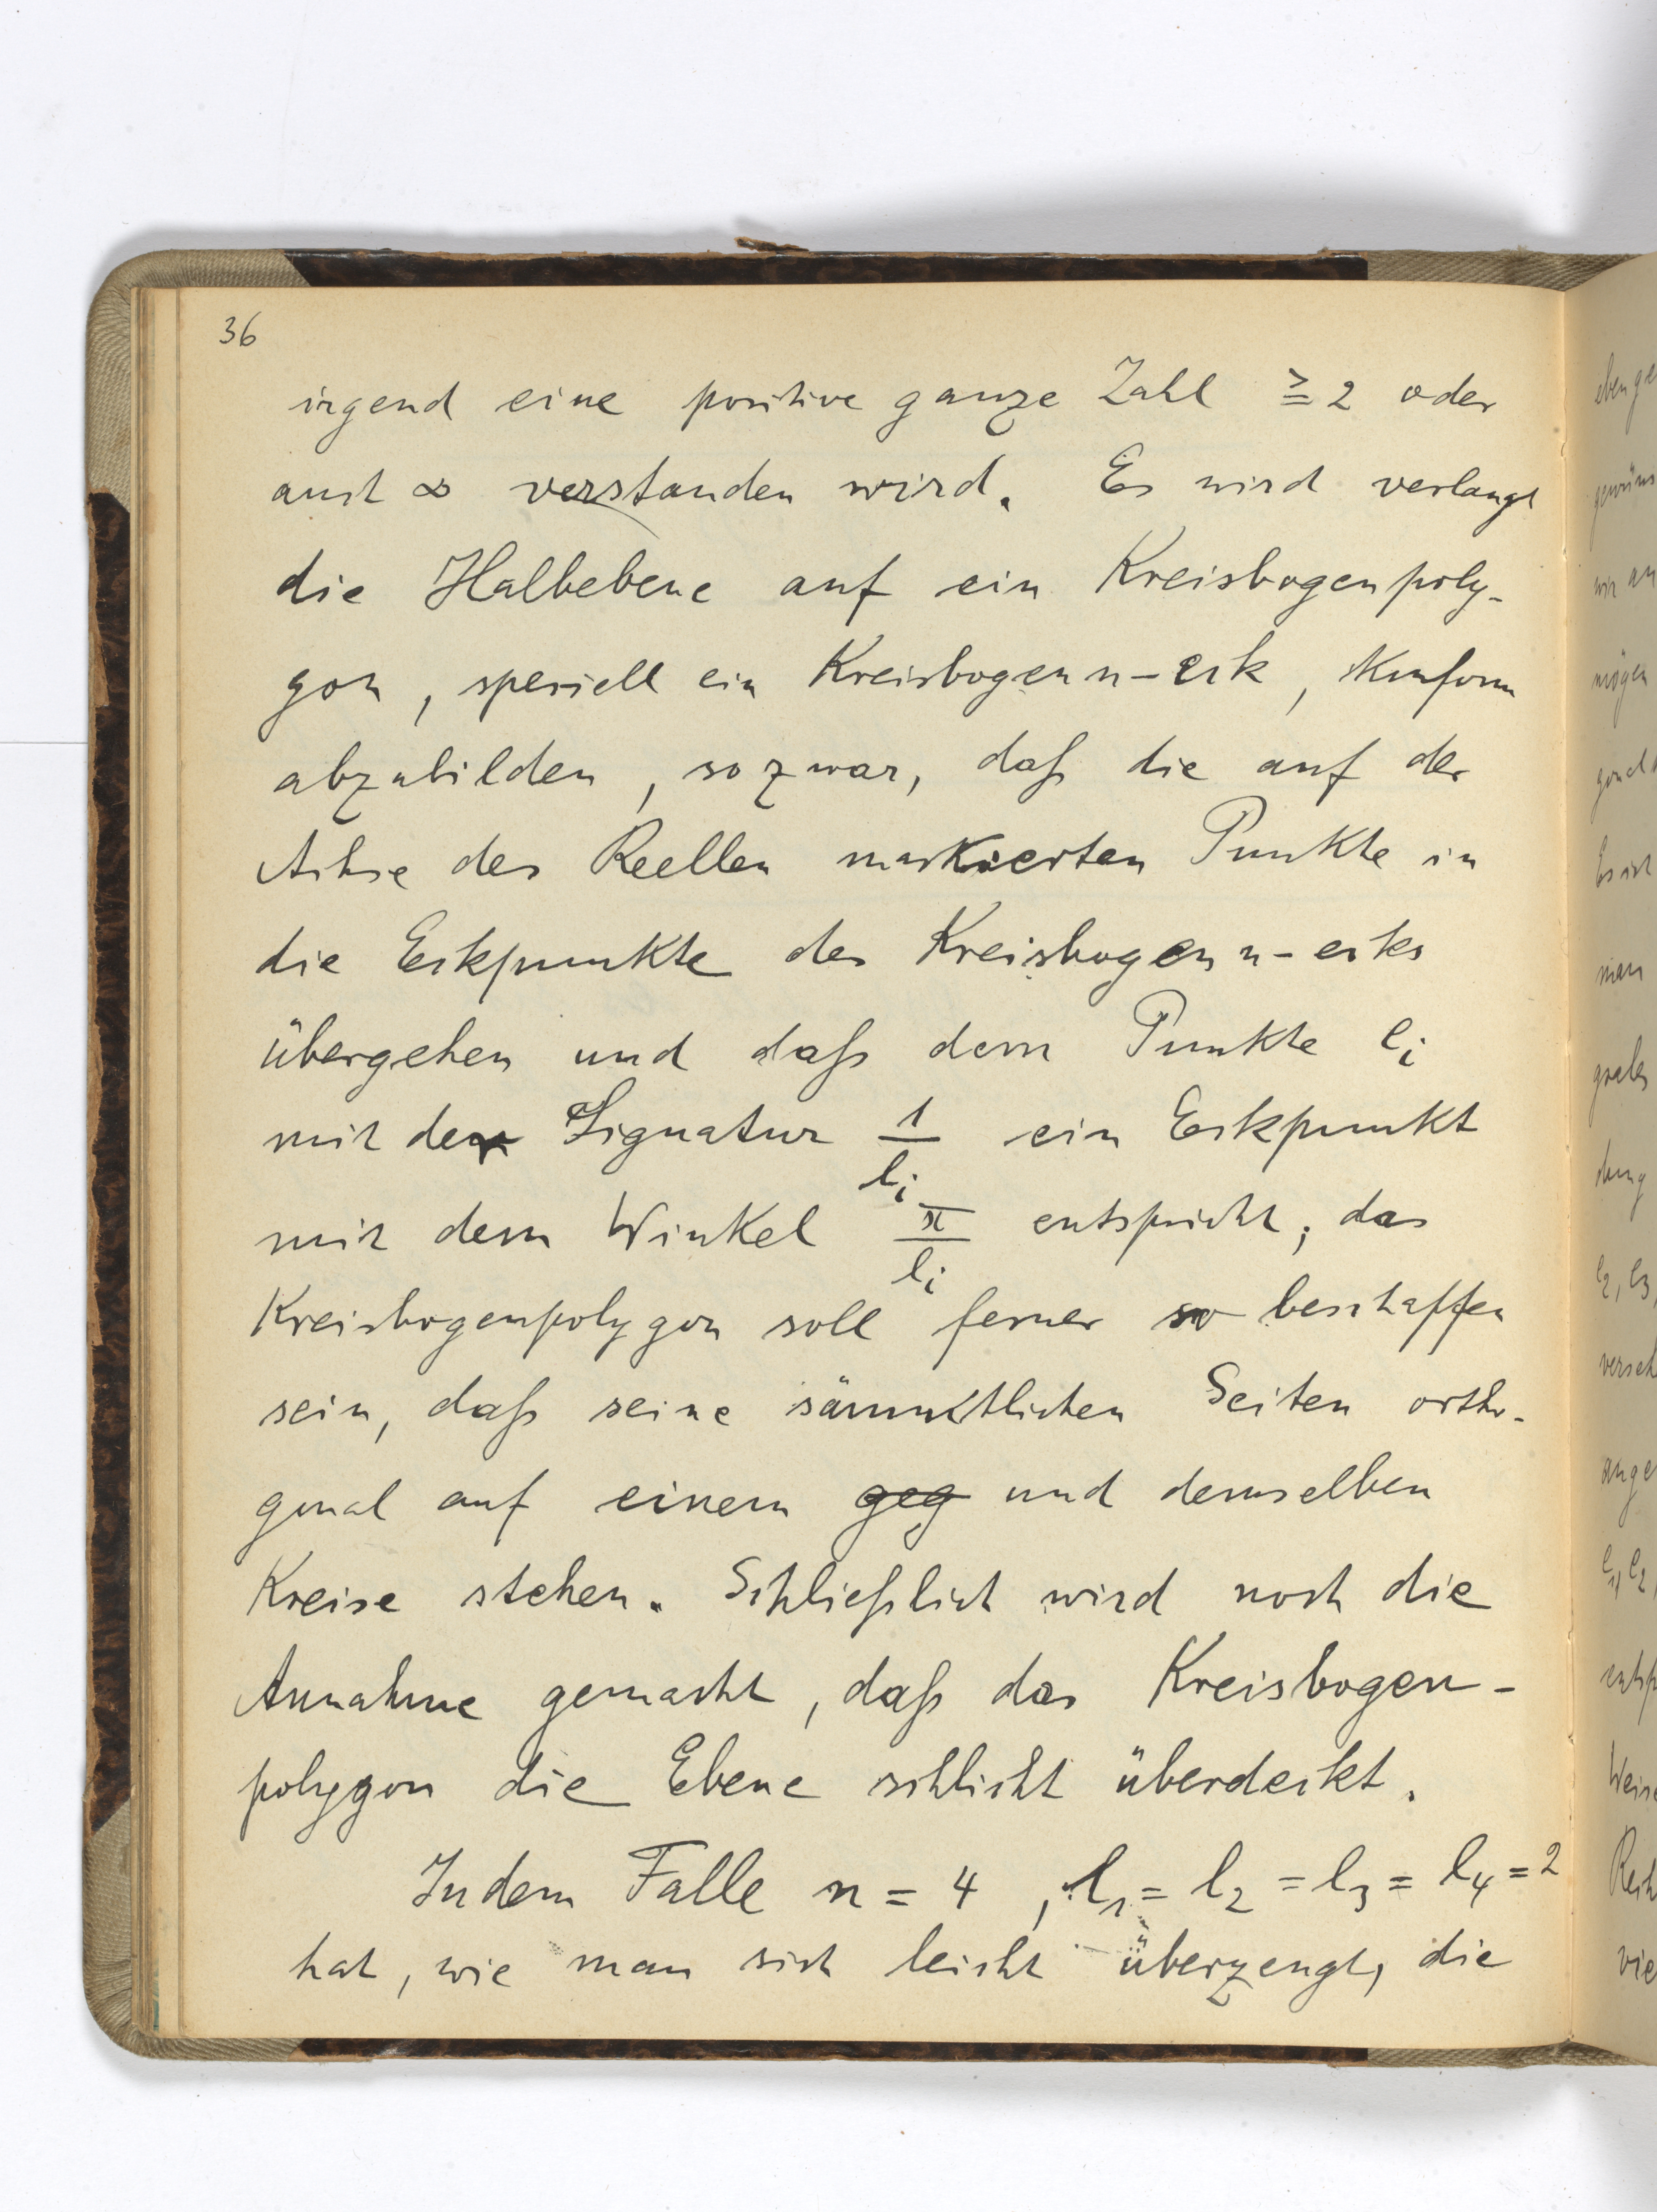 36
irgend eine positive ganze Zahl ≧ 2 oder
auch ∞ verstanden wird. Es wird verlangt
die Halbebene auf ein Kreisbogenpoly-
gon, speciell ein Kreisbogen n-eck, konform
abzubilden, so zwar, daß die auf der
Achse des Reellen markierten Punkte in
die Eckpunkte des Kreisbogen n-ecks
übergehen und daß dem Punkte e_i
mit der Signatur 1/l_i ein Eckpunkt
mit dem Winkel π/l_i entspricht; das
Kreisbogenpolygon soll ferner so beschaffen
sein, daß seine sämmtlichen Seiten ortho-
gonal auf einem geg und demselben
Kreise stehen. Schließlich wird noch die
Annahme gemacht, daß das Kreisbogen-
polygon die Ebene schlicht überdeckt.
In dem Falle n = 4, l_1 = l_2 = l_3 = l_4 = 2
hat, wie man sich leicht überzeugt, die